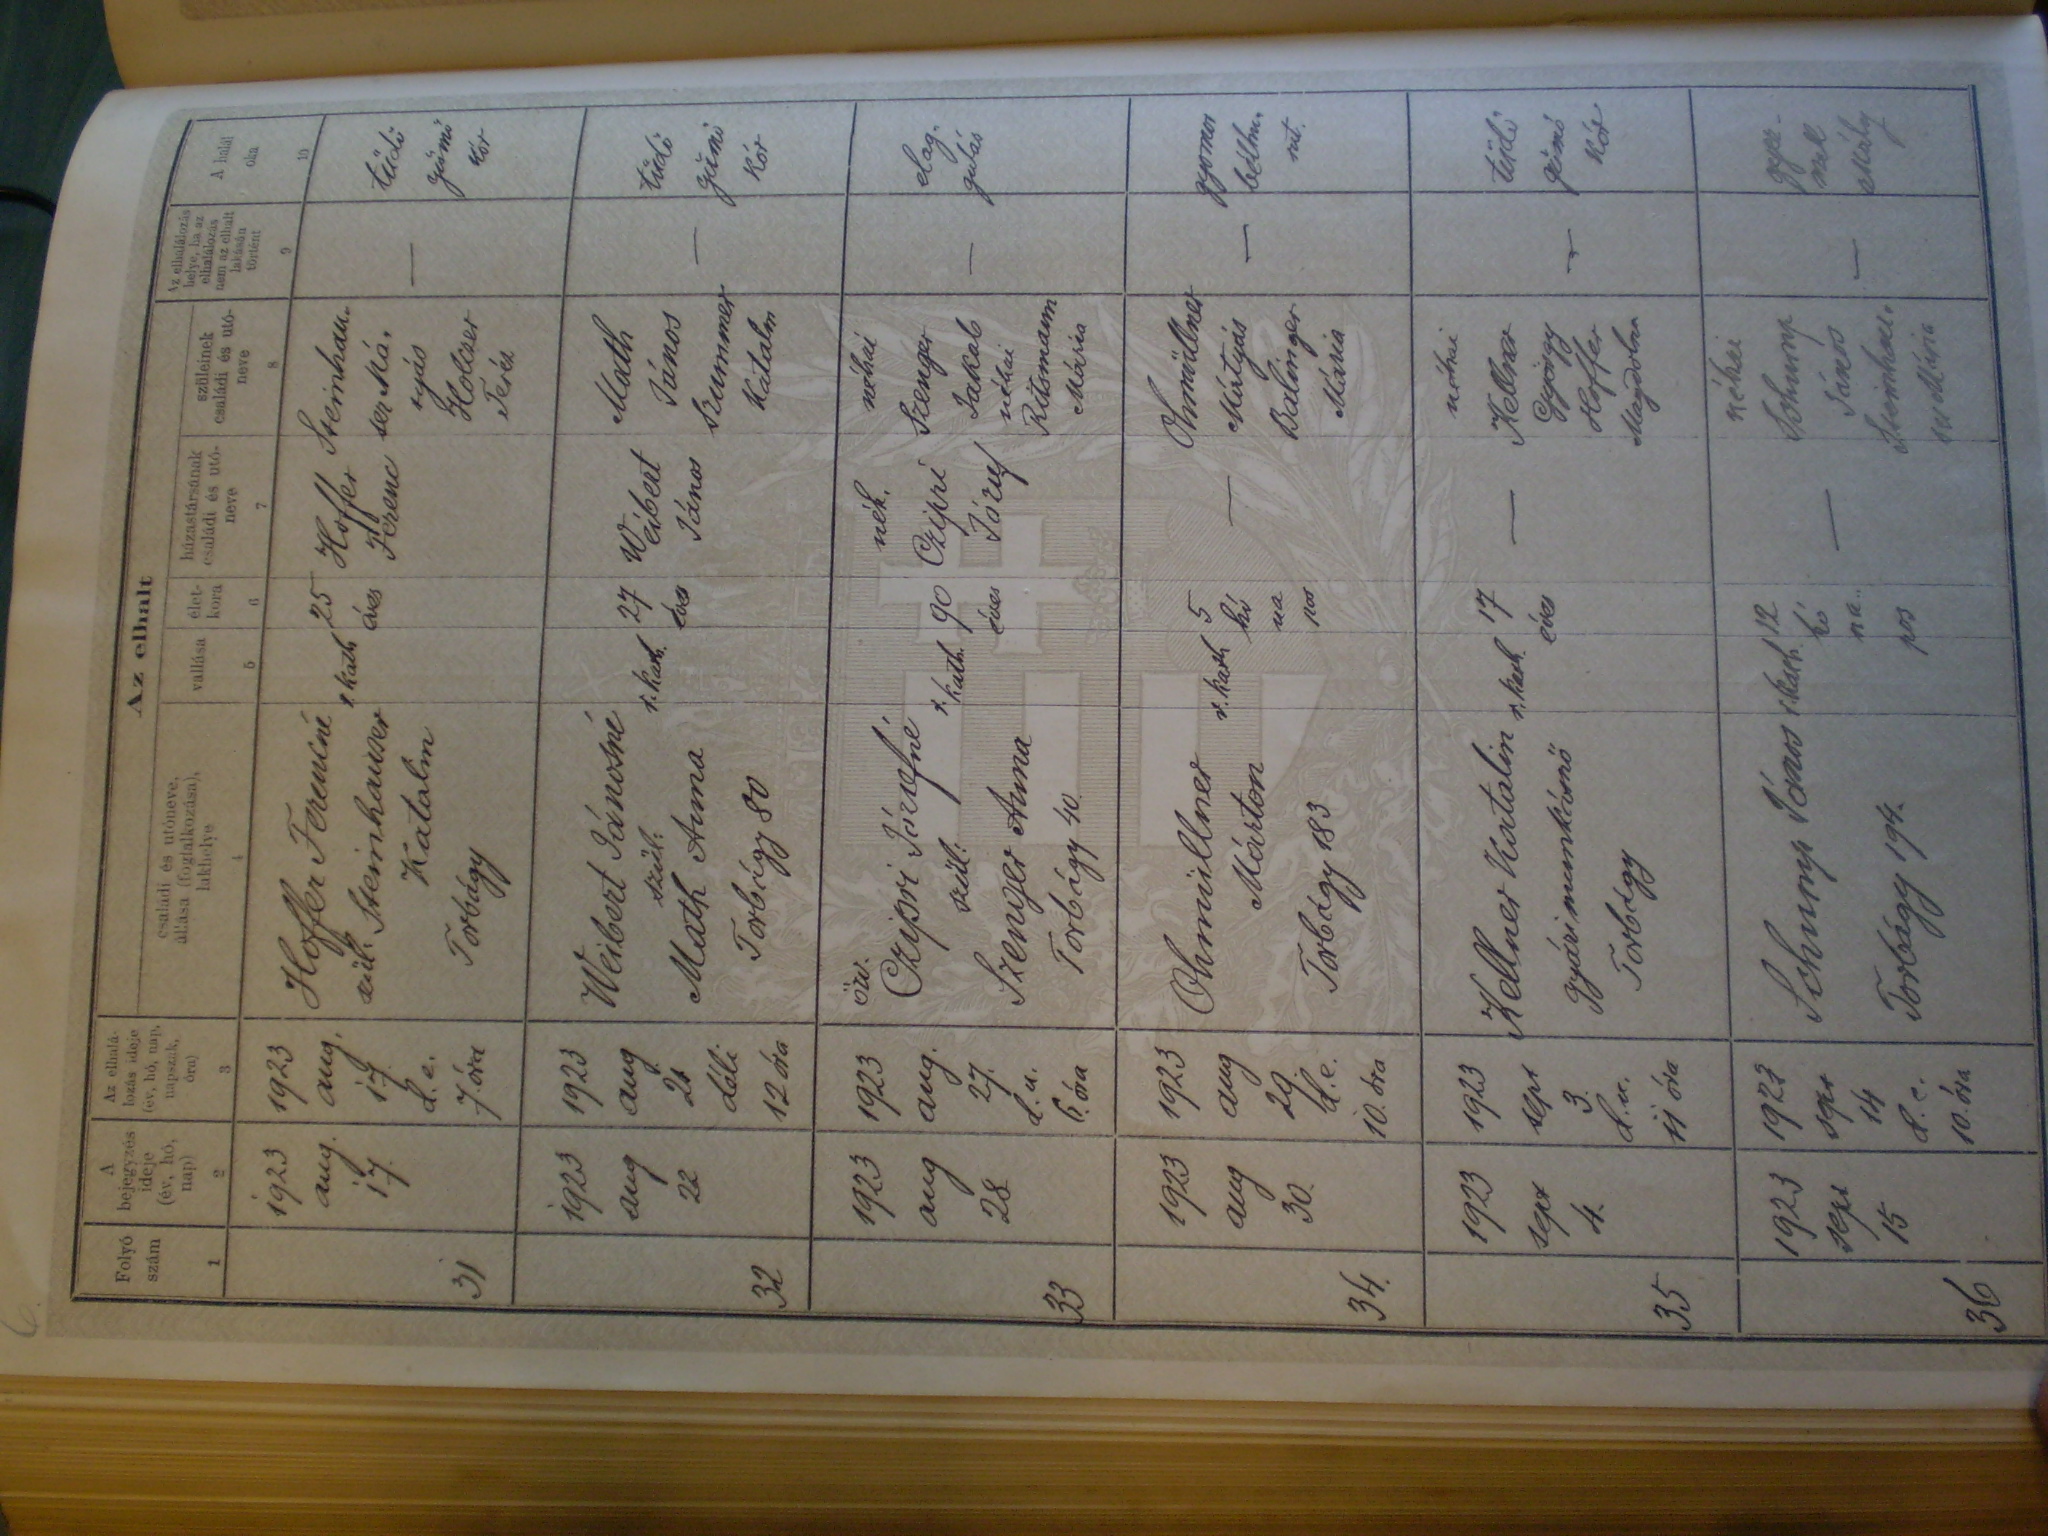 6.
Az elhalt
Folyó
szám
A
bejegyzés
ideje
(év, hó,
nap)
Az elhalá-
lozás ideje
(év, hó, nap,
napszak,
óra)
családi és utóneve,
állása (foglalkozása),
lakhelye
vallása
élet-
kora
házastársának
családi és utó-
neve
szüleinek
családi és utó-
neve
Az elhalálozás
helye, ha az
elhalálozás
nem az elhalt
lakásán
történt
A halál
oka
1
2
3
4
5
6
7
8
9
10
31
1923
aug.
17.
1923
aug.
17.
d. e.
7. óra
Hoffer Ferencné
szül. Steinhauser
Katalin
Torbágy
r. kath
25
éves
Hoffer
Ferenc
Steinhau-
ser Má-
tyás
Holczer
Teréz
—
tüdő
gümő
kór
32
1923
aug
22
1923
aug
21
déli
12 óra
Weibert Jánosné
szül:
Math Anna
Torbágy 80
r. kath.
27
éves
Weibert
János
Math
János
Szummer
Katalin
—
tüdő
gümő
kór
33
1923
aug
28
1923
aug.
27.
d. u.
6. óra
özv.
Czipri Józsefné
szül:
Szenger Anna
Torbágy 40.
r. kath.
90
éves
néh.
Czipri
József
néhai
Szenger
Jakab
néhai
Ritsmann
Mária
—
elag-
gulás
34.
1923
aug
30.
1923
aug
29
d. e.
10. óra
Ohmüllner
Márton
Torbágy 183
r. kath
5
hó
na
pos
—
Ohmüllner
Mátyás
Balinger
Mária
—
gyomor
bélhu-
rut.
35
1923
sept
4.
1923
sept
3.
d. u.
11 óra
Kellner Katalin
gyári munkásnő
Torbágy
r. kath.
17
éves
—
néhai
Kellner
György
Hoffer
Magdolna
—
tüdő
gümő
kór
36
1923
sept
15
1923
sept
14
d. e.
10. óra
Schump János
Torbágy 194.
r. kath.
12
hó
na-
pos
—
néhai
Schump
János
Steinhau-
ser Mária
—